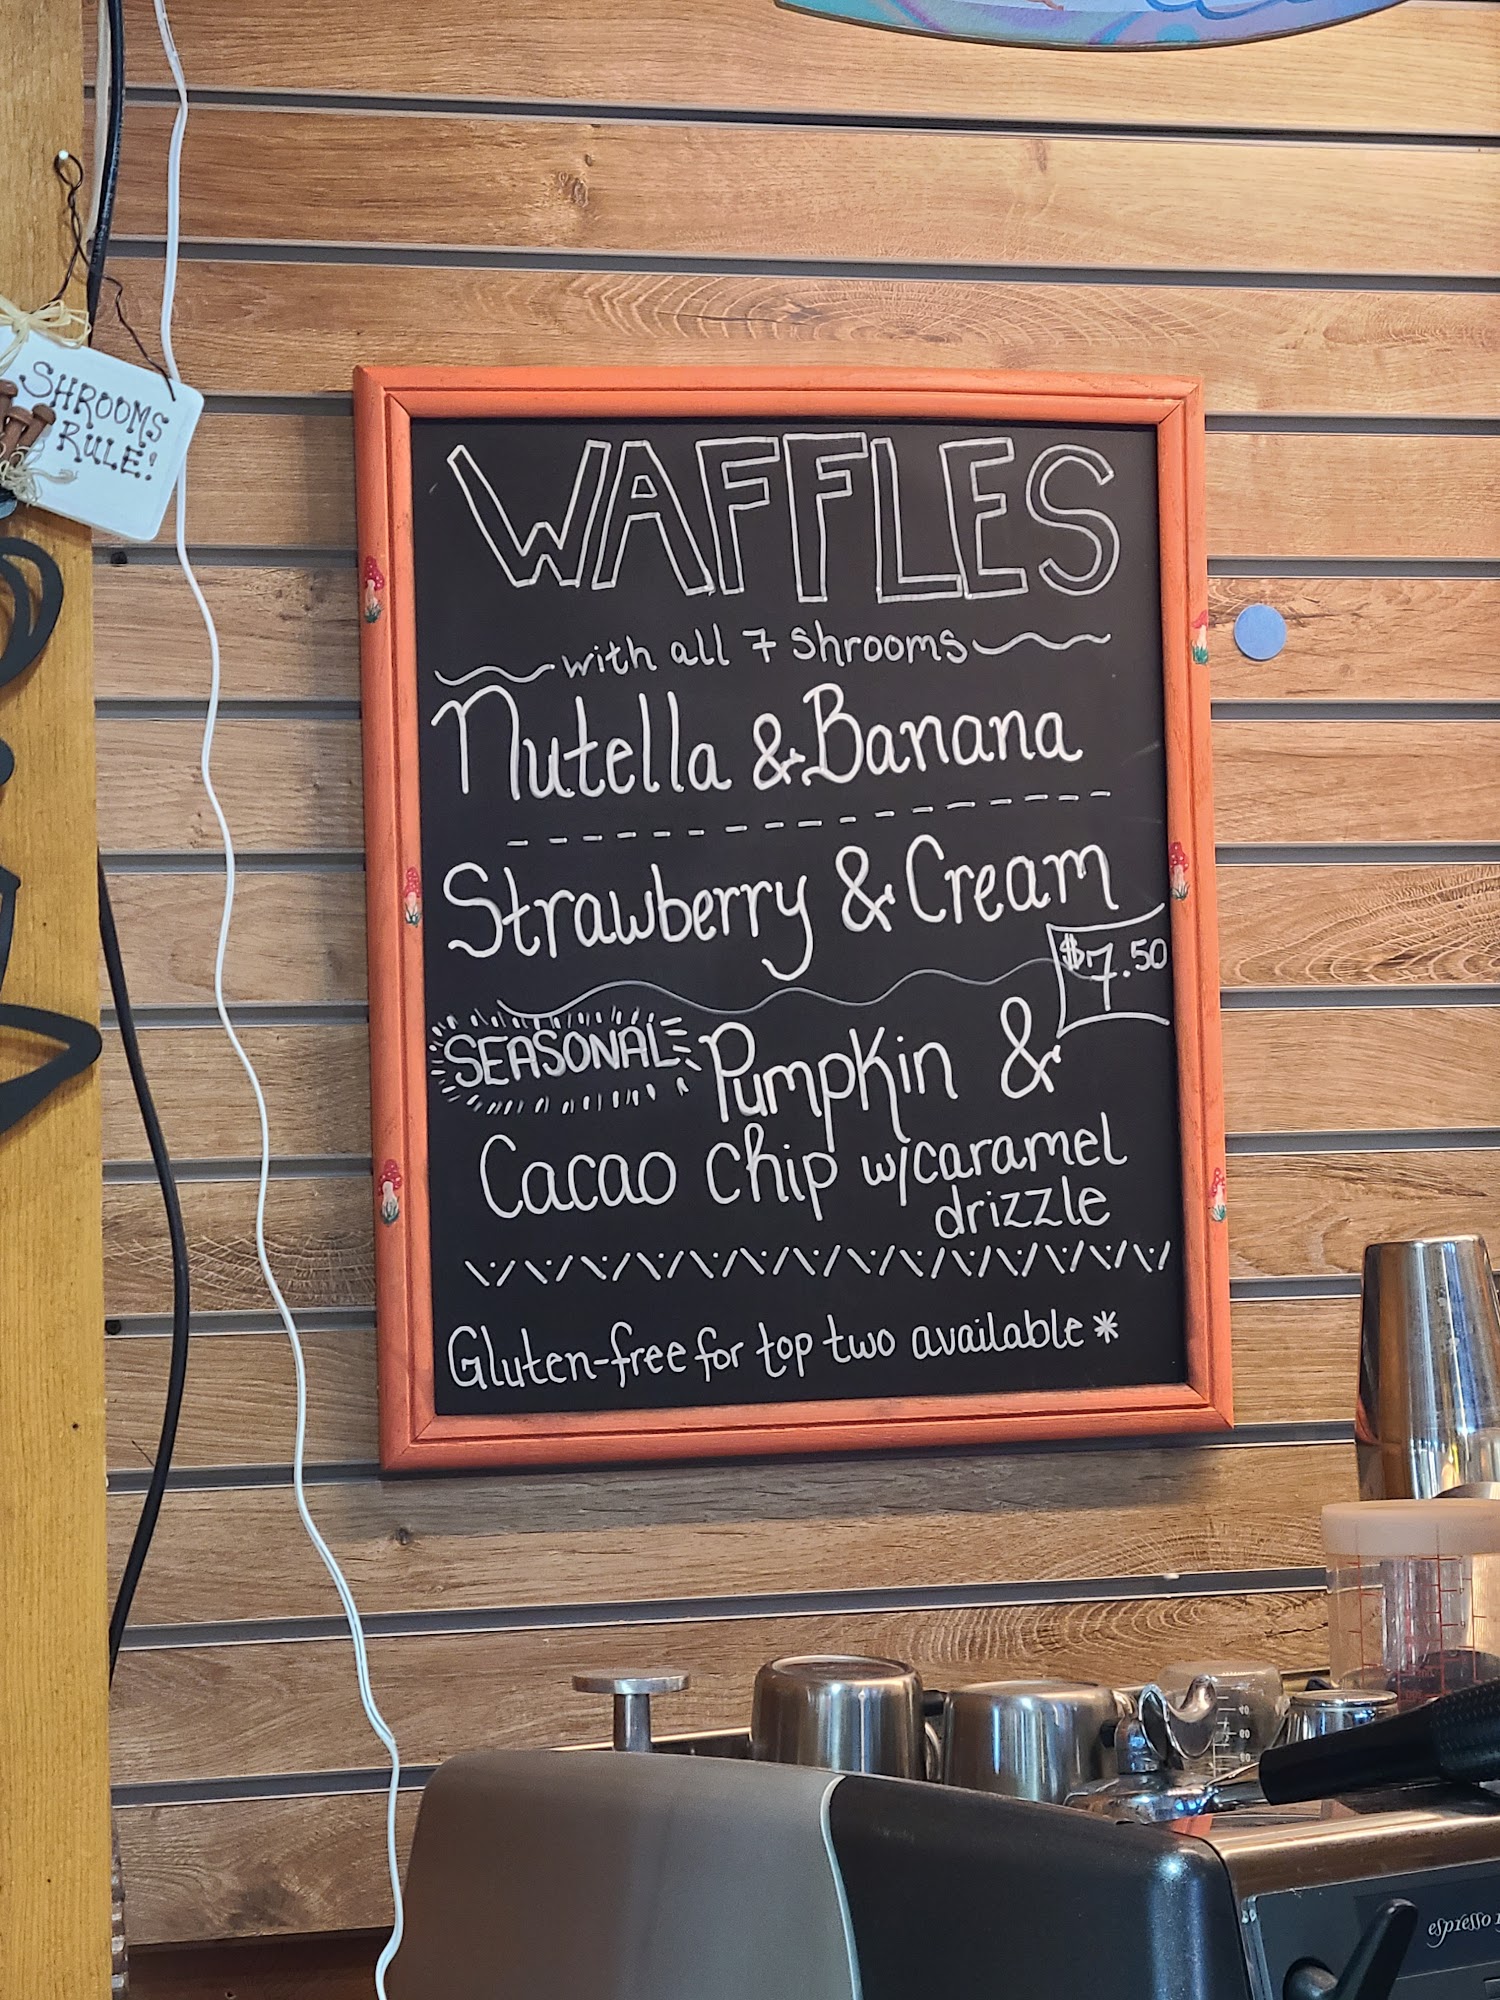 SHROOMS
RULE!
WAFFLES
with all 7 shrooms
Nutella & Banana
Strawberry & Cream
$7.50
SEASONAL Pumpkin &
Cacao chip w/caramel
drizzle
Gluten-free for top two available*
espresso